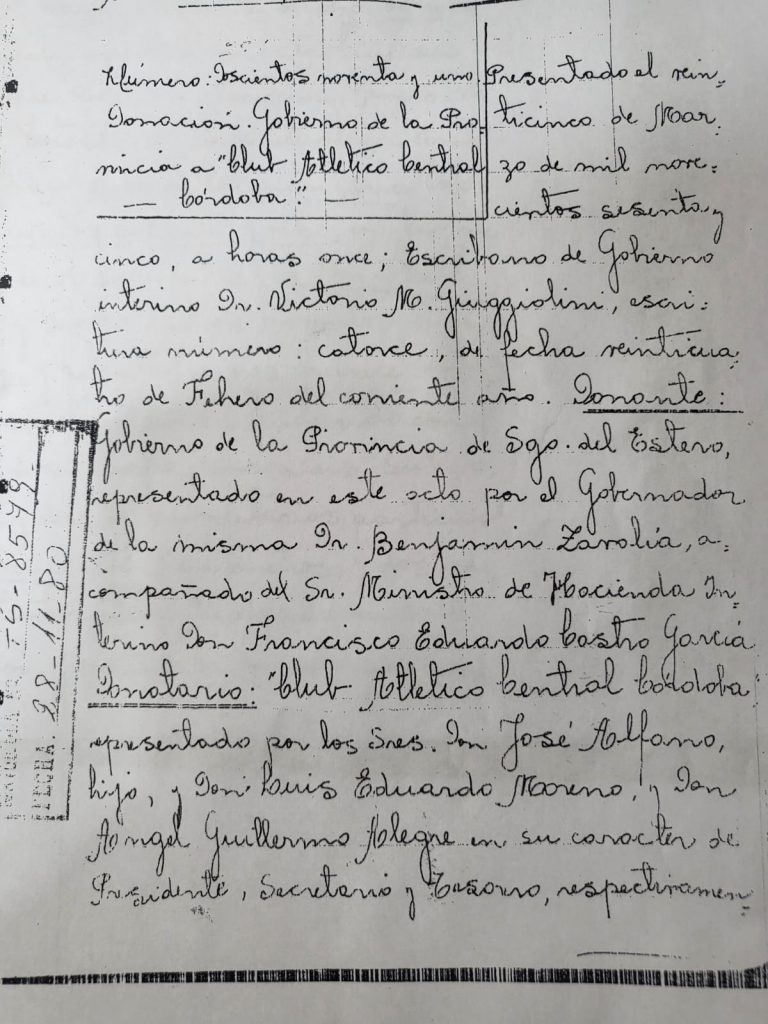 Número: Doscientos noventa y uno.
Donación. Gobierno de la Pro-
vincia a "Club Atletico Central
— Córdoba". —
Presentado el vein-
ticinco de Mar-
zo de mil nove-
cientos sesenta y
cinco, a horas once; Escribano de Gobierno
interino Dr. Victorio M. Giuggiolini, escri-
tura número: catorce, de fecha veinticua-
tro de Febrero del corriente año. Donante:
Gobierno de la Provincia de Sgo. del Estero,
representado en este acto por el Gobernador
de la misma Dr. Benjamin Zavalía, a-
compañado del Sr. Ministro de Hacienda In-
terino Don Francisco Eduardo Castro García
Donatario: "Club Atletico Central Córdoba
representado por los Sres. Don José Alfano,
hijo, y Don Luis Eduardo Moreno, y Don
Angel Guillermo Alegre en su caracter de
Presidente, Secretario y Tesorero, respectivamen-
TS-8549-
FECHA. 28-11-80